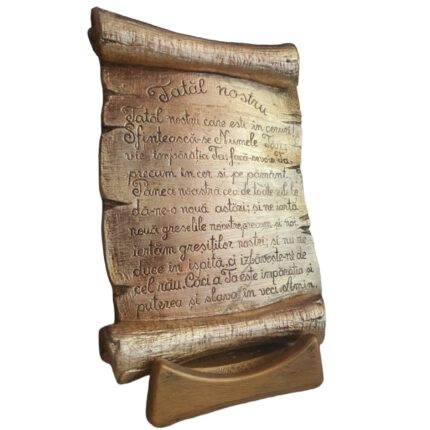 Tatăl nostru
Tatăl nostru care esti în ceruri!
Sfintească-se Numele Tau;
vie împărăția Ta; facă-se voia Ta
precum în cer si pe pământ.
Panea noastră cea de toate zilele
dă-ne-o nouă astăzi; si ne iartă
nouă greselile noastre, precum si noi
iertăm gresitilor nostri; si nu ne
duce în ispită, ci izbăveste-ne de
cel rău. Căci a Ta este împărăția si
puterea si slava în veci.